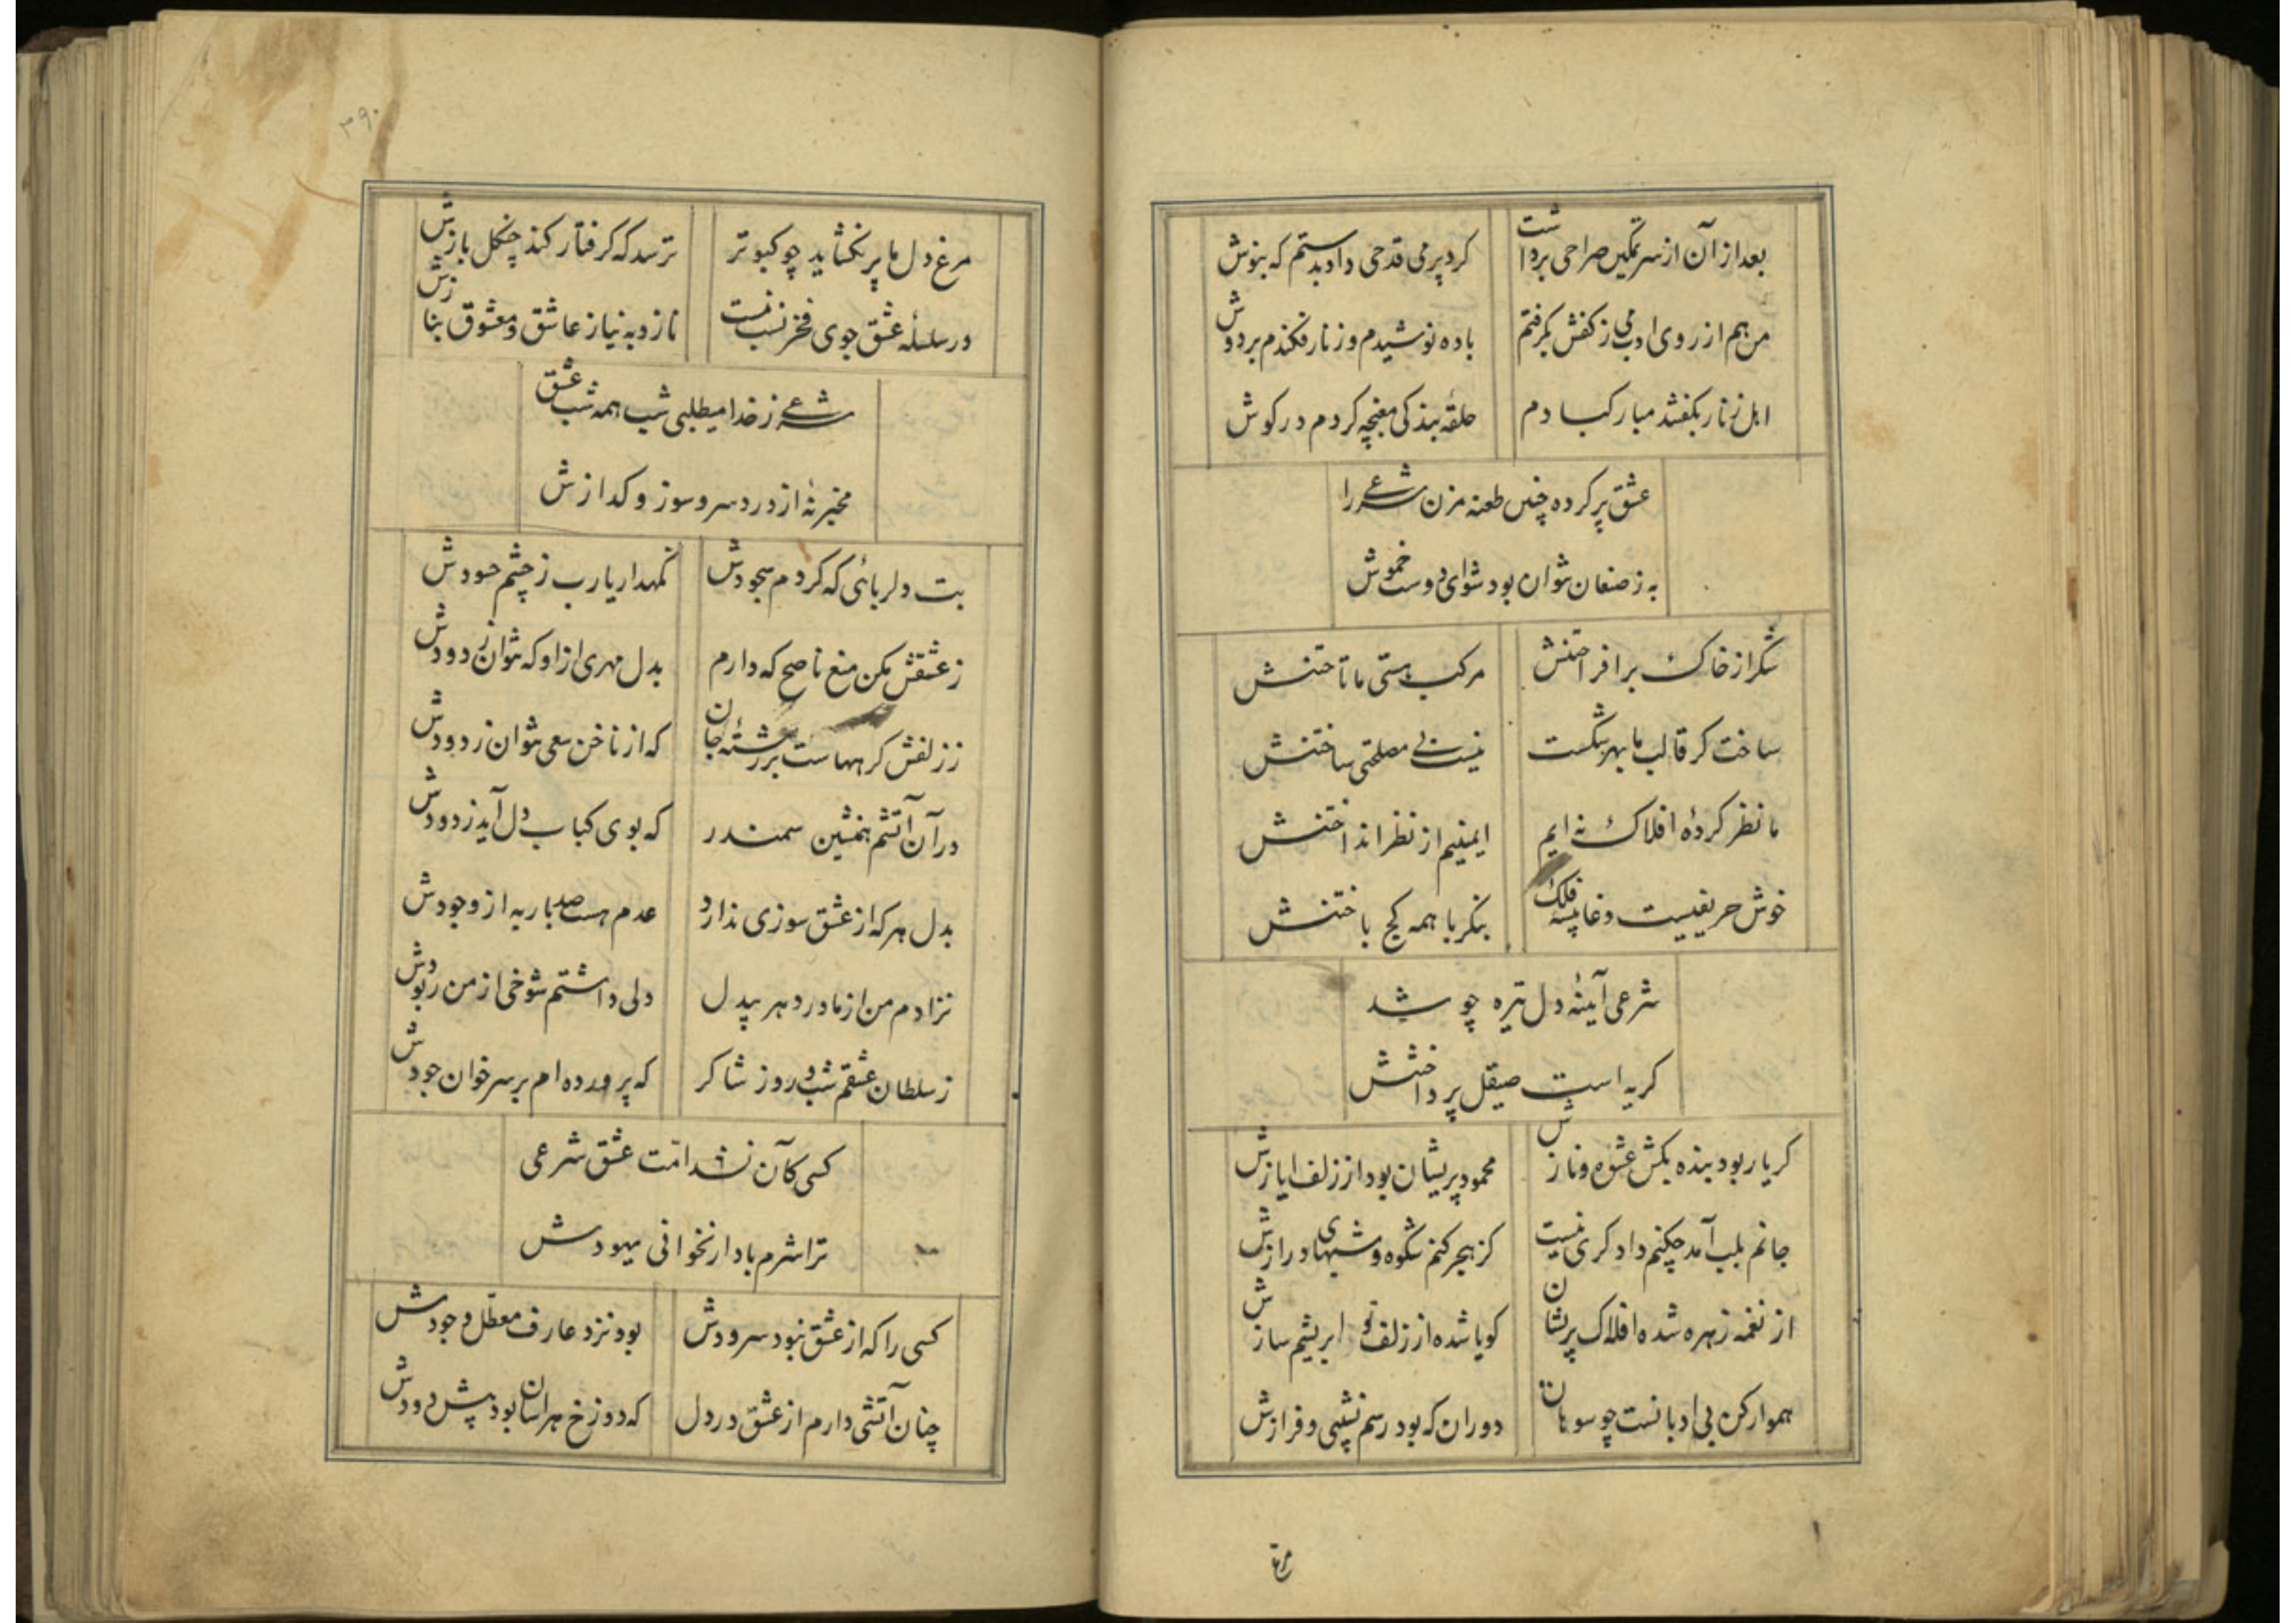 بعد از آن از سر تمکین صراحی برداشت
کرد پر می قدحی داد بدستم که بنوش
من هم از روی ادب می ز کفش بگرفتم
باده نوشیدم و زنار فکندم بر دوش
اهل زنار بگفتند مبارکبادم
حلقهٔ بندکی مغبچه کردم در کوش
عشق پر کرده چنین طعنه مزن شرعی را
به ز صنعان نتوان بود شو ای دوست خموش
شکر از خاک برافراختنش
مرکب هستی ما تاختنش
ساخت کر قالب ما بهر شکست
نیست بی مصلحتی ساختنش
ما نظر کردهٔ افلاک نه ایم
ایمنیم از نظر انداختنش
خوش حریفیست دغا پیشه فلک
بنکر با همه کج باختنش
شرعی آینهٔ دل تیره چو شد
کریه است صیقل پرداختنش
کر یار بود بنده بکش عشوه و نازش
محمود پریشان بود از زلف ایازش
جانم بلب آمد چکنم دادکری نیست
کز هجر کنم شکوه و شبهای درازش
از نغمه زهره شده افلاک پریشان
کویا شده از زلف تو ابریشم سازش
هموارکن بی ادبانست چو سوهان
دوران که بود رسم نشیبی و فرازش
مرغ
۳۹۰
مرغ دل ما پر نکشاید چو کبوتر
ترسد که کرفتار کند چنکل بازش
در سلسلهٔ عشق جوی فخر نسب نیست
نازد به نیاز عاشق و معشوق بنازش
شرعی ز خدا میطلبی شب همه شب عشق
مخبر نهٔ از دردسر و سوز و کدازش
بت دلربائی که کردم سجودش
نکهدار یارب ز چشم حسودش
ز عشقش مکن منع ناصح که دارم
بدل مهری از او که نتوان زدودش
ز زلفش کرههاست بر رشتهٔ جان
که از ناخن سعی نتوان زدودش
در آن آتشم همنشین سمندر
که بوی کباب دل آید ز دودش
بدل هر که از عشق سوزی ندارد
عدم هست صد بار به از وجودش
نزادم من از مادر دهر بیدل
دلی داشتم شوخی از من ربودش
ز سلطان عشقم شب و روز شاکر
که پرورده ام بر سر خوان جودش
کسی کآن نشد امّت عشق شرعی
ترا شرم باد ار نخوانی یهودش
کسی را که از عشق نبود سرودش
بود نزد عارف معطّل وجودش
چنان آتشی دارم از عشق در دل
که دوزخ هراسان بود پیش دودش